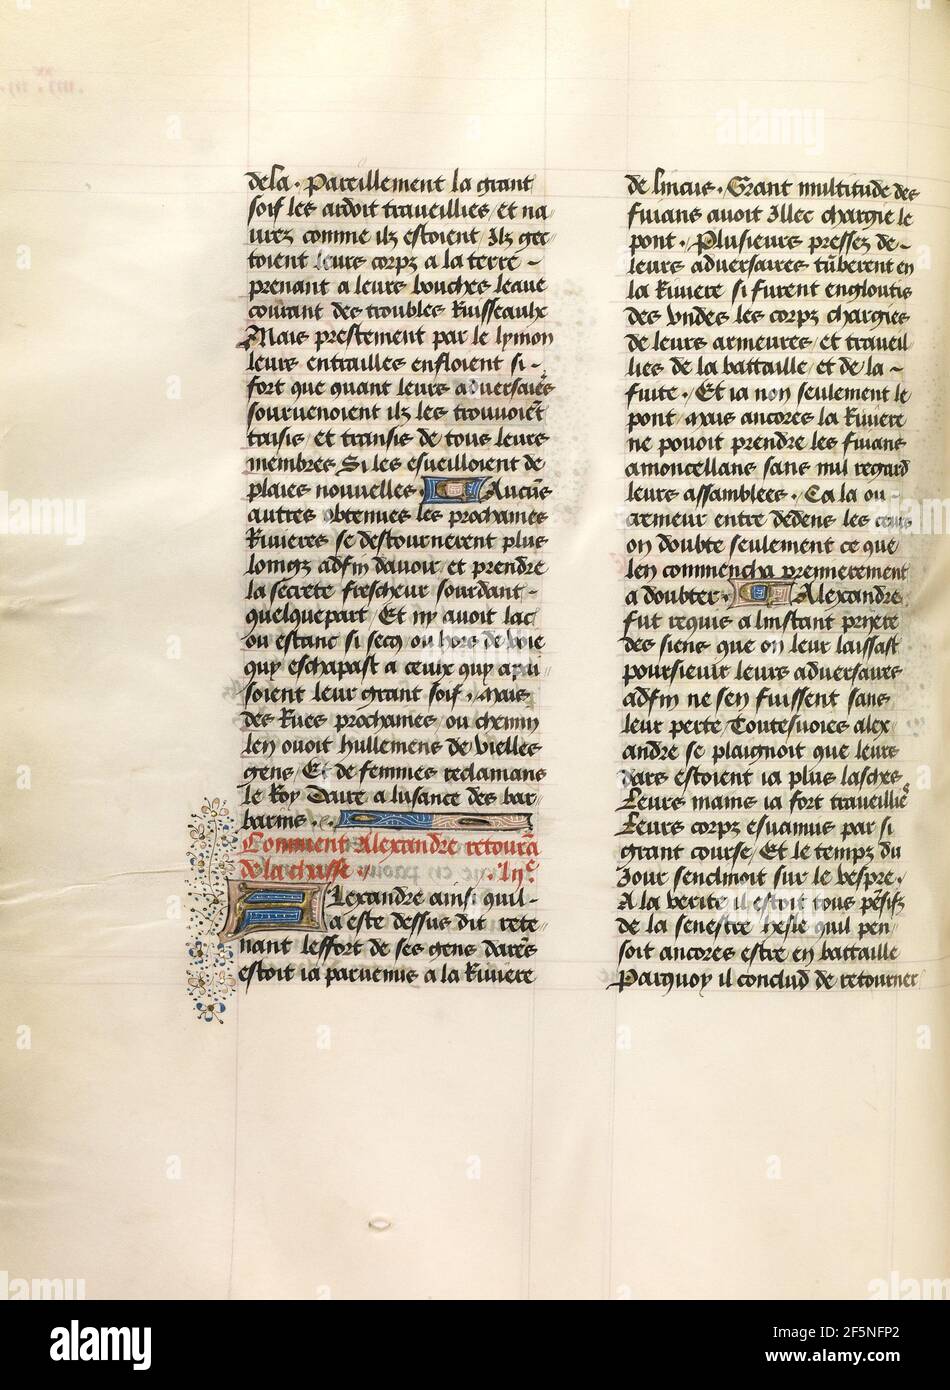 dela . Pareillement la grant
soif les ardoit traveillies / et na
vrez comme ilz estoient / Ilz get
toient leurs corpz a la terre -
prenant a leurs bouches leaue
courant des troubles Ruisseaulx
Mais prestement par le lymon
leurs entrailles enfloient si -
fort que quant leurs adversaires
sourvenoient ilz les trouvoient
taisis / et transis de tous leurs
membres Si les esveilloient de
plaies nouvelles . Aucuns
autres obtenues les prochaines
Rivieres se destournerent plus
loingz adfin davoir / et prendre
la secrete frescheur sourdant -
quelquepart / Et ny avoit lac
ou estanc si secq ou hors de voie
quy eschapast a ceulx quy apai
soient leur grant soif . Mais
des Rues prochaines / ou chemin
len ouoit hullemens de vielles
gens / Et de femmes reclamans
le Roy Daire a lusance des bar-
barins .
Comment Alexandre retourna
de la chasse . lije
Alexandre ainsi quil -
a este dessus dit rete
nant leffort de ses gens darriens
estoit ia parvenus a la Riviere
de lincus . Grant multitude des
fuians avoit Illec chargie le
pont . Plusieurs pressez de -
leurs adversaires tumberent en
la Riviere si furent engloutis
des undes les corpz chargies
de leurs armeures / et traveil
lies de la battaille / et de la -
fuite . Et ia non seulement le
pont / mais ancores la Riviere
ne povoit prendre les fuians
amoncellans sans nul regard
leurs assamblees . Ca la ou
cremeur entre dedens les ceurs
on doubte seulement ce que
len commencha premierement
a doubter . Alexandre
fut requis a linstant priere
des siens que on leur laissast
poursievir leurs adversaires
adfin ne sen fuissent sans
leur perte / Toutesvoies alex
andre se plaignoit que leurs
dars estoient ia plus lasches
Leurs mains ia fort travaillies
Leurs corpz esvanuis par si
grant course / Et le tempz du
Jour senclinoit sur le vespre .
A la verite il estoit tous pensifz
de la senestre hesle quil pen
soit ancores estre en battaille
Parquoy il conclud de retourner
alamy
Image ID: 2F5NFP2
www.alamy.com